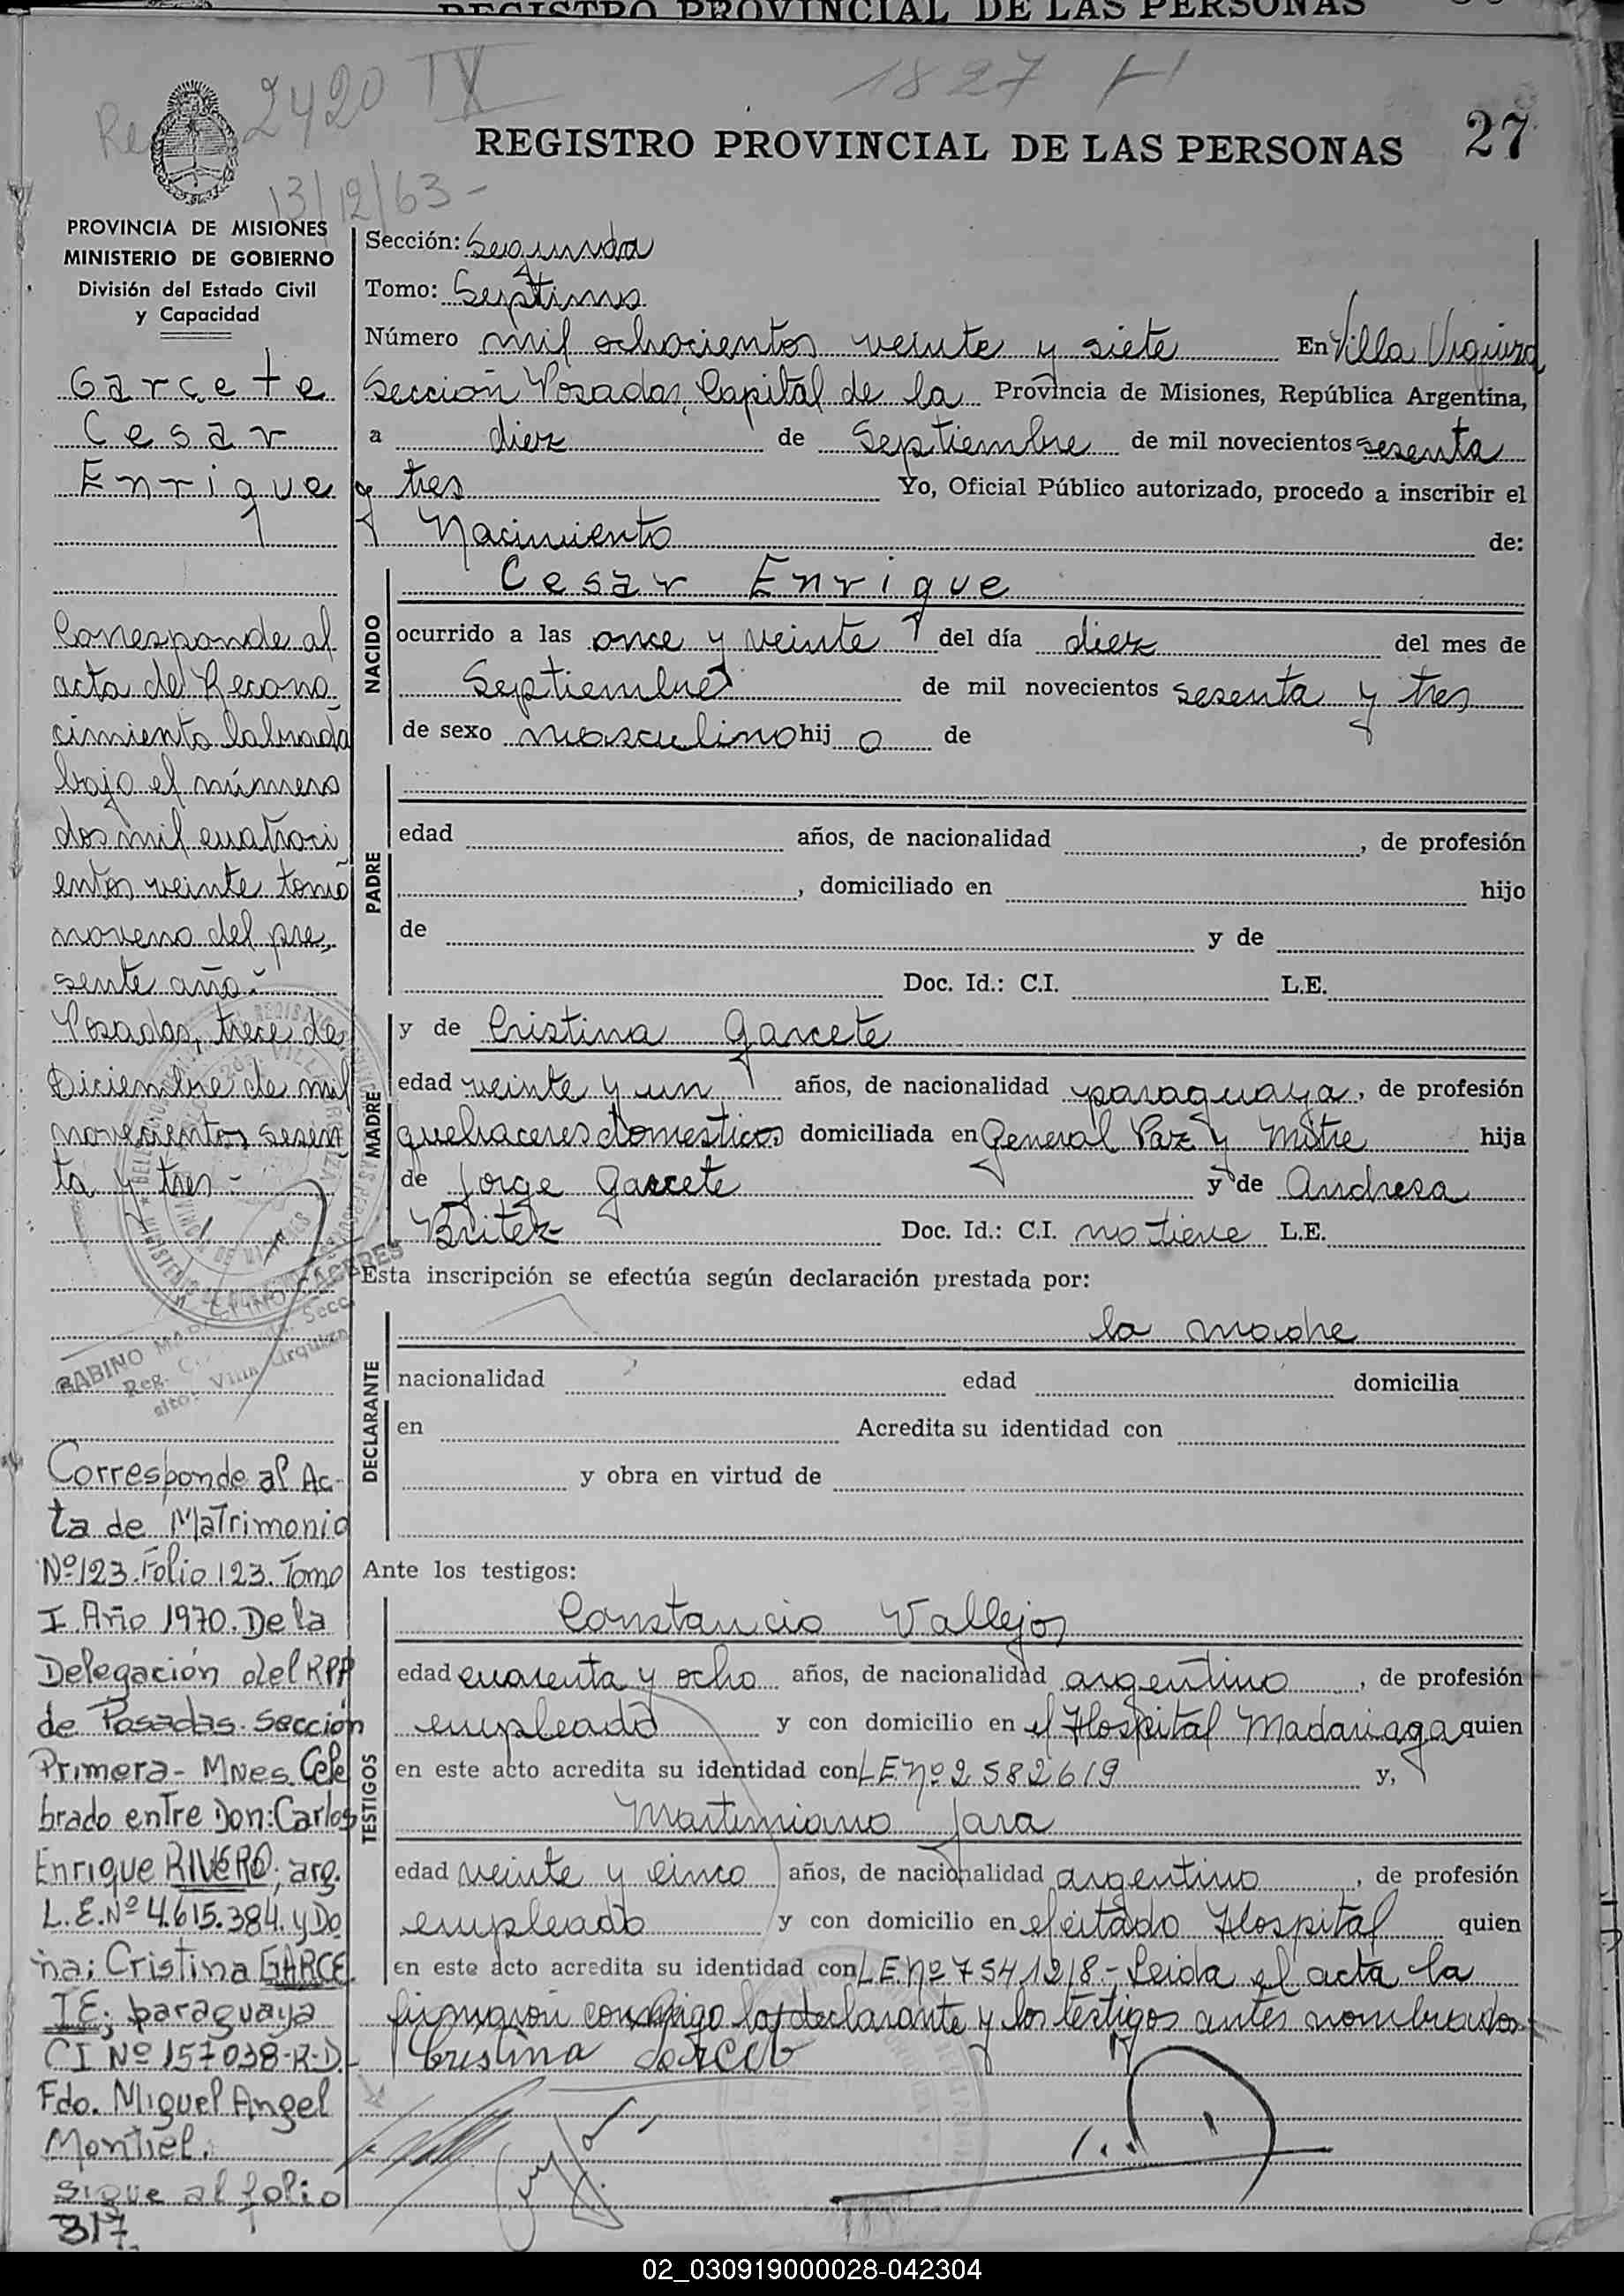 REGISTRO PROVINCIAL DE LAS PERSONAS
2420 IX
1827 H
REGISTRO PROVINCIAL DE LAS PERSONAS 27
13/12/63-
PROVINCIA DE MISIONES
MINISTERIO DE GOBIERNO
División del Estado Civil
y Capacidad
Garcete
Cesar
Enrique
Corresponde al
acta de Recono-
cimiento labrada
bajo el número
dos mil cuatroci
entos veinte tomo
noveno del pre-
sente año.-
Posadas, trece de
Diciembre de mil
novecientos sesen
ta y tres.-
Corresponde al Ac-
ta de Matrimonio
Nº 123. Folio 123. Tomo
I. Año 1970. De la
Delegación del RPP
de Posadas. Sección
Primera- Mnes. Cele
brado entre Don: Carlos
Enrique RIVERO; arg.
L.E. Nº 4.615.384. y Do
ña; Cristina GARCE
TE; paraguaya
CI Nº 157038-R-D.
Fdo. Miguel Angel
Montiel.
Sigue al folio
317.
Sección: Segunda
Tomo: Septimo
Número mil ochocientos veinte y siete En Villa Urquiza
Sección Posadas, Capital de la Provincia de Misiones, República Argentina,
a diez de Septiembre de mil novecientos sesenta
y tres Yo, Oficial Público autorizado, procedo a inscribir el
Nacimiento de:
NACIDO
Cesar Enrique
ocurrido a las once y veinte del día diez del mes de
Septiembre de mil novecientos sesenta y tres
de sexo masculino hij o de
PADRE
edad años, de nacionalidad , de profesión
, domiciliado en hijo
de y de
Doc. Id.: C.I. L.E.
MADRE
y de Cristina Garcete
edad veinte y un años, de nacionalidad paraguaya, de profesión
quehaceres domesticos domiciliada en General Paz y Mitre hija
de Jorge Garcete y de Andresa
Britez Doc. Id.: C.I. no tiene L.E.
Esta inscripción se efectúa según declaración prestada por:
DECLARANTE
la madre
nacionalidad edad domicilia
en Acredita su identidad con
y obra en virtud de
Ante los testigos:
TESTIGOS
Constancio Vallejos
edad cuarenta y ocho años, de nacionalidad argentino, de profesión
empleado y con domicilio en el Hospital Madariaga quien
en este acto acredita su identidad con LE nº 2582619 y,
Martimiano Jara
edad veinte y cinco años, de nacionalidad argentino, de profesión
empleado y con domicilio en el citado Hospital quien
en este acto acredita su identidad con LE nº 7541218.- Leida el acta la
firmaron conmigo la declarante y los testigos antes nombrados
Cristina
02_030919000028-042304